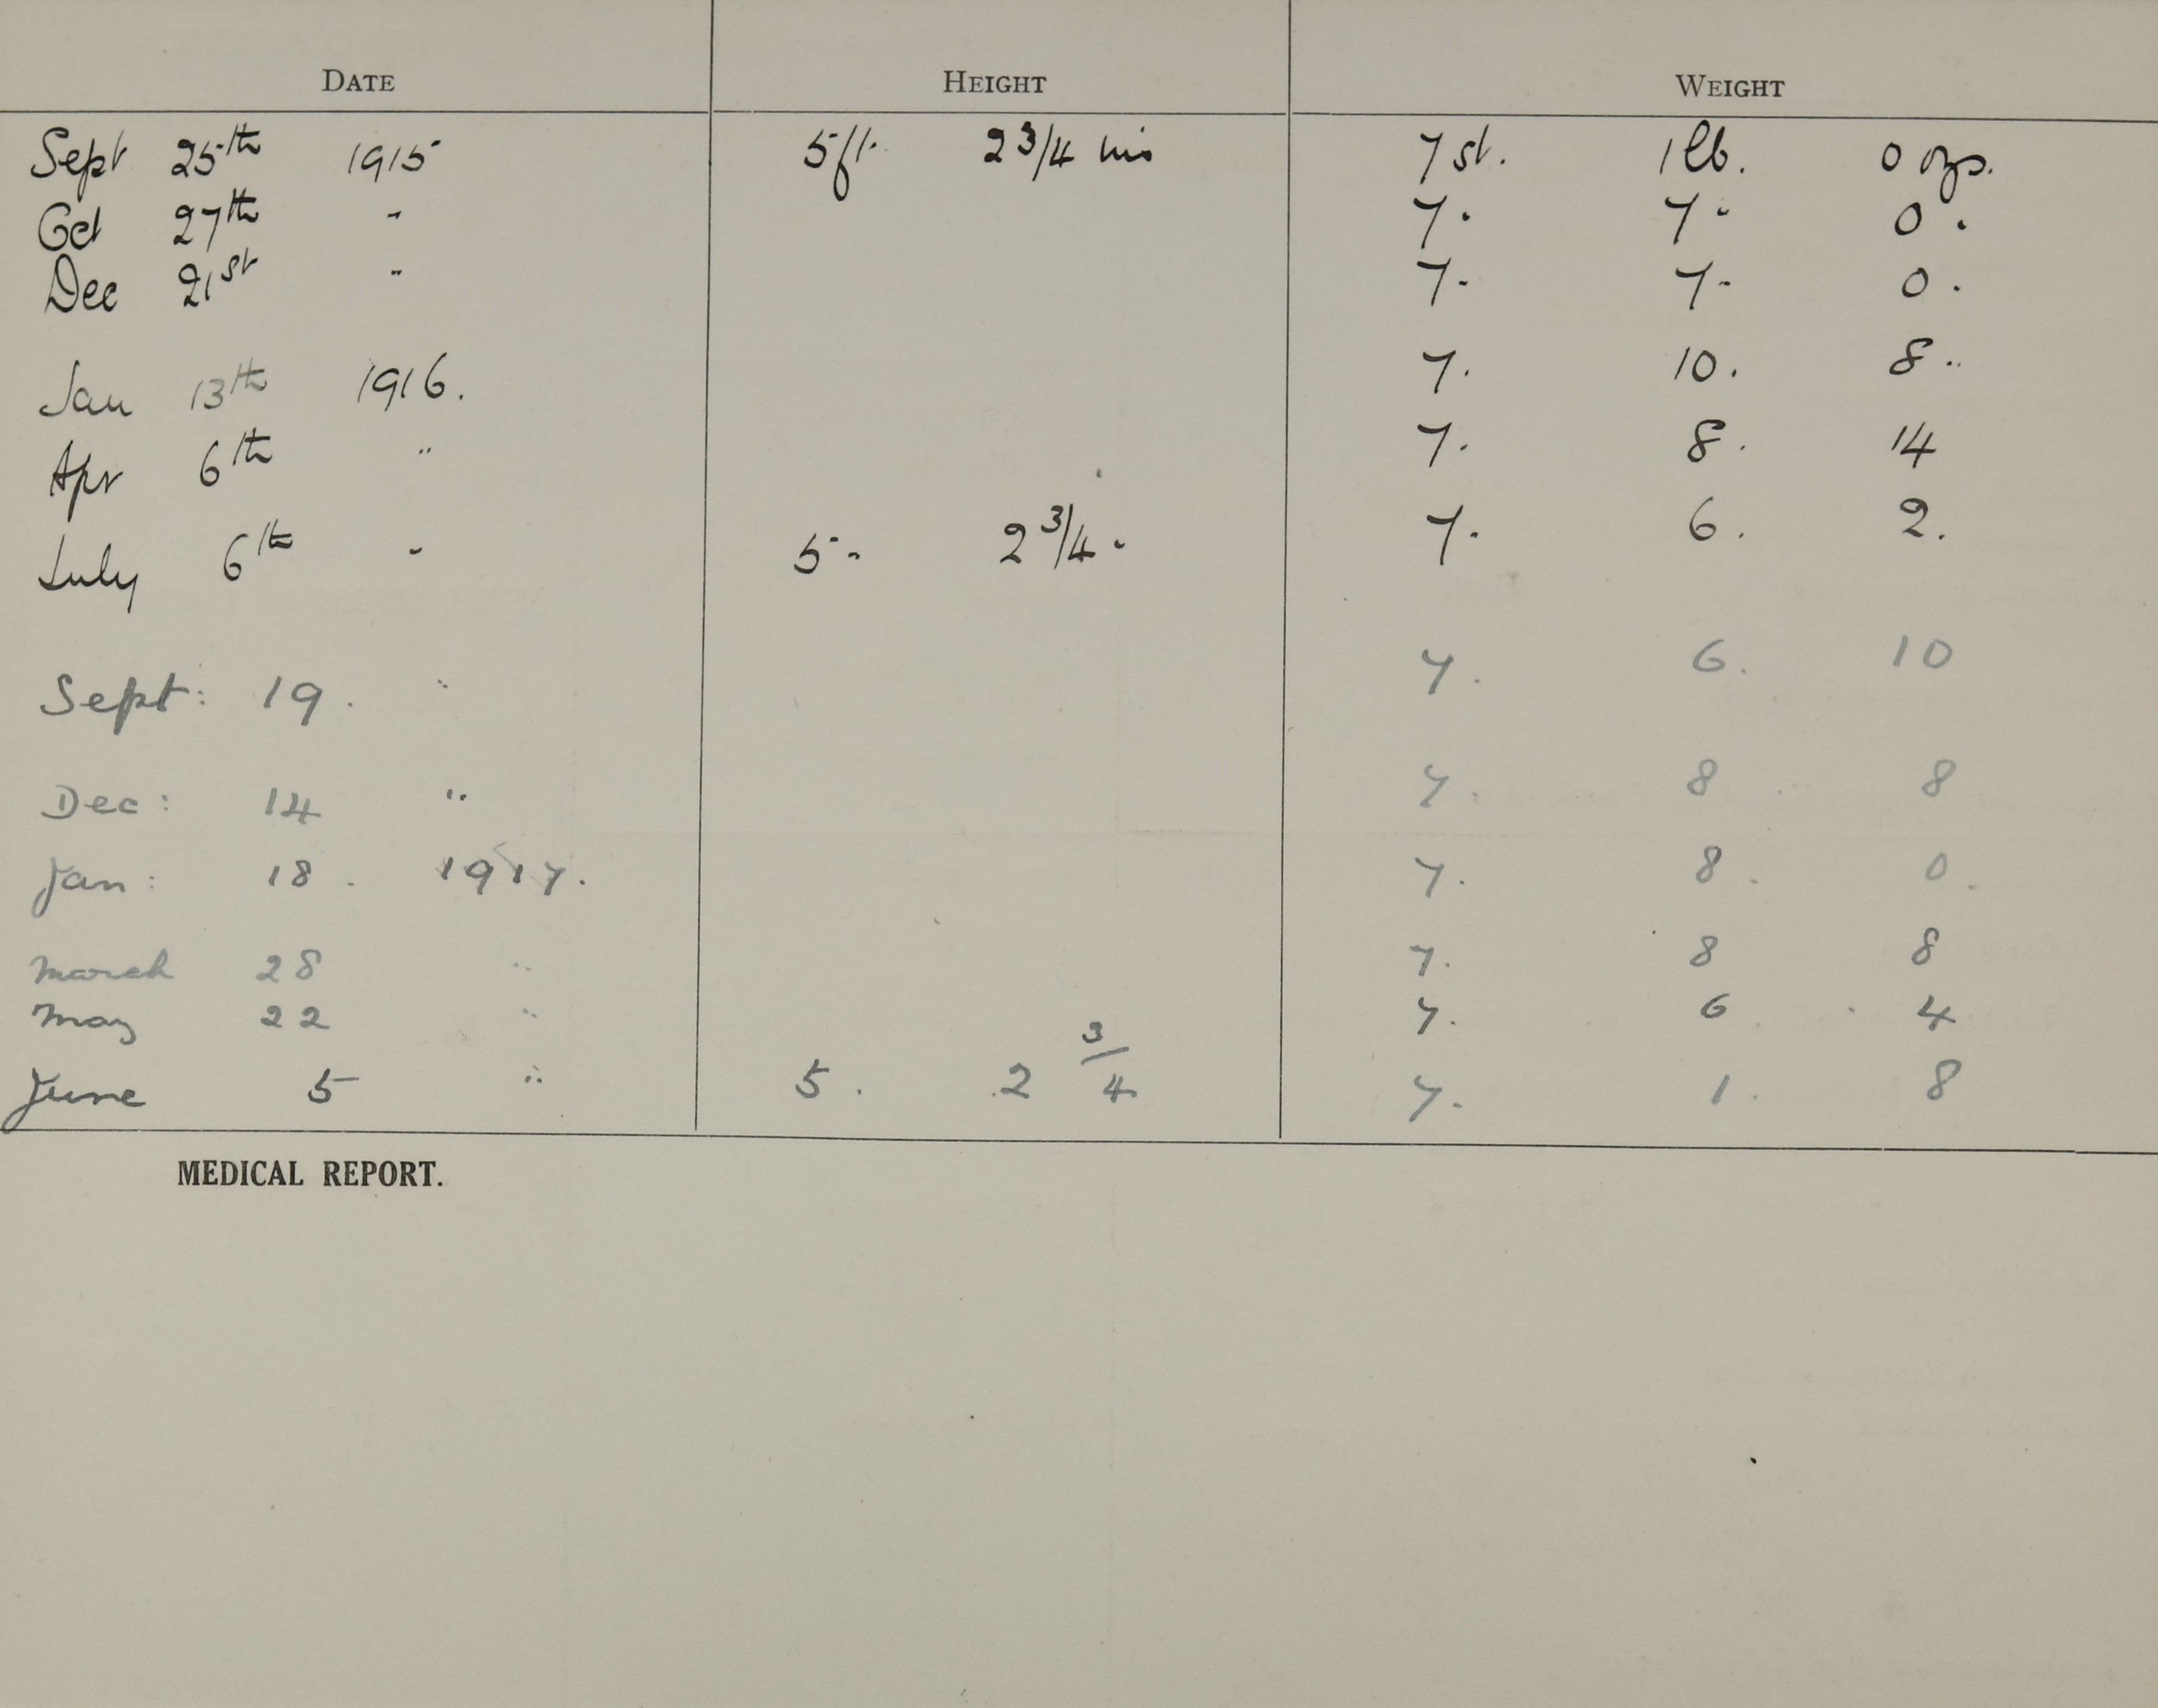 DATE HEIGHT WEIGHT
Sept 25th 1915 5ft. 2 3/4 ins 7 st. 1 lb. 0 ozs.
Oct 27th " 7 " 7 " 0 "
Dec 21st " 7 " 7 " 0 "
Jan 13th 1916. 7. 10. 8 "
Apr 6th " 7. 8. 14
July 6th " 5 " 2 3/4 " 7. 6. 2.
Sept: 19. " 7. 6. 10
Dec: 14 " 7. 8 8
Jan: 18. 1917. 7. 8. 0.
March 28 " 7. 8 8
May 22 " 7. 6 4
June 5 " 5. 2 3/4 7. 1. 8
MEDICAL REPORT.